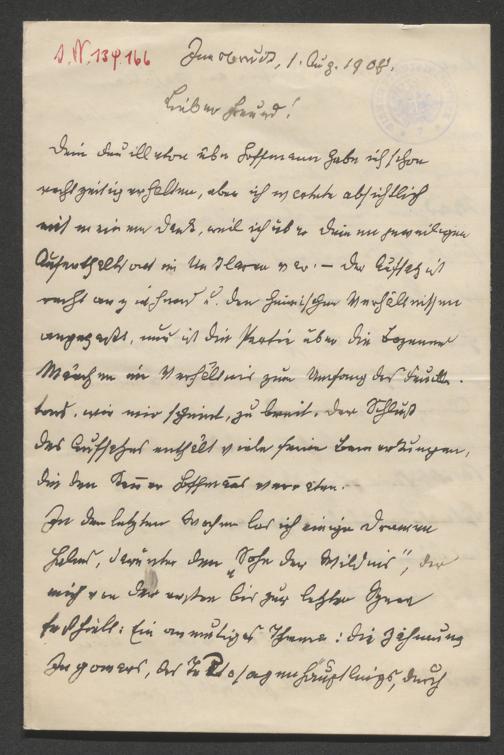 I.N. 139.166
Innsbruck, 1. Aug. 1908.
Lieber Freund!
Dein Feuilleton über Hoffmann habe ich schon
rechtzeitig erhalten, aber ich wartete absichtlich
mit meinem Dank, weil ich über deinen jeweiligen
Aufenthaltsort im Unklaren war. – Der Aufsatz ist
recht anziehend u. den heimischen Verhältnissen
angepaßt, nur ist die Partie über die Bozener
Märchen im Verhältnis zum Umfang des Feuille-
tons, wie mir scheint, zu breit. Der Schluß
des Aufsatzes enthält viele feine Bemerkungen,
die den Kenner Hoffmanns verraten.
In den letzten Wochen las ich einige Dramen
Halms, darunter den „Sohn der Wildnis", der
mich von der ersten bis zur letzten Szene
festhielt: Ein anmutiges Thema: die Zähmung
Ingomars, des Tektosagenhäuptlings, durch